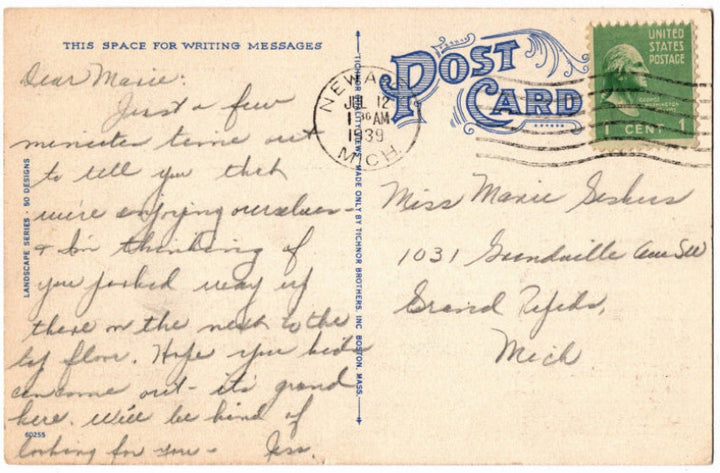 THIS SPACE FOR WRITING MESSAGES
Dear Marie:
Just a few
minutes time out
to tell you that
we're enjoying ourselves -
& I'm thinking of
you parked way up
there on the next to the
top floor. Hope you kids
can come out - it's grand
here. Will be kind of
looking for you - Jess.
LANDSCAPE SERIES - 50 DESIGNS
60255
MADE ONLY BY TICHNOR BROTHERS, INC. BOSTON, MASS.
POST
CARD
NEWA
JUL 12
AM
1939
MICH.
UNITED
STATES
POSTAGE
GEORGE
WASHINGTON
1 CENT 1
Miss Marie
1031 Grandville Ave SW
Grand Rapids,
Mich